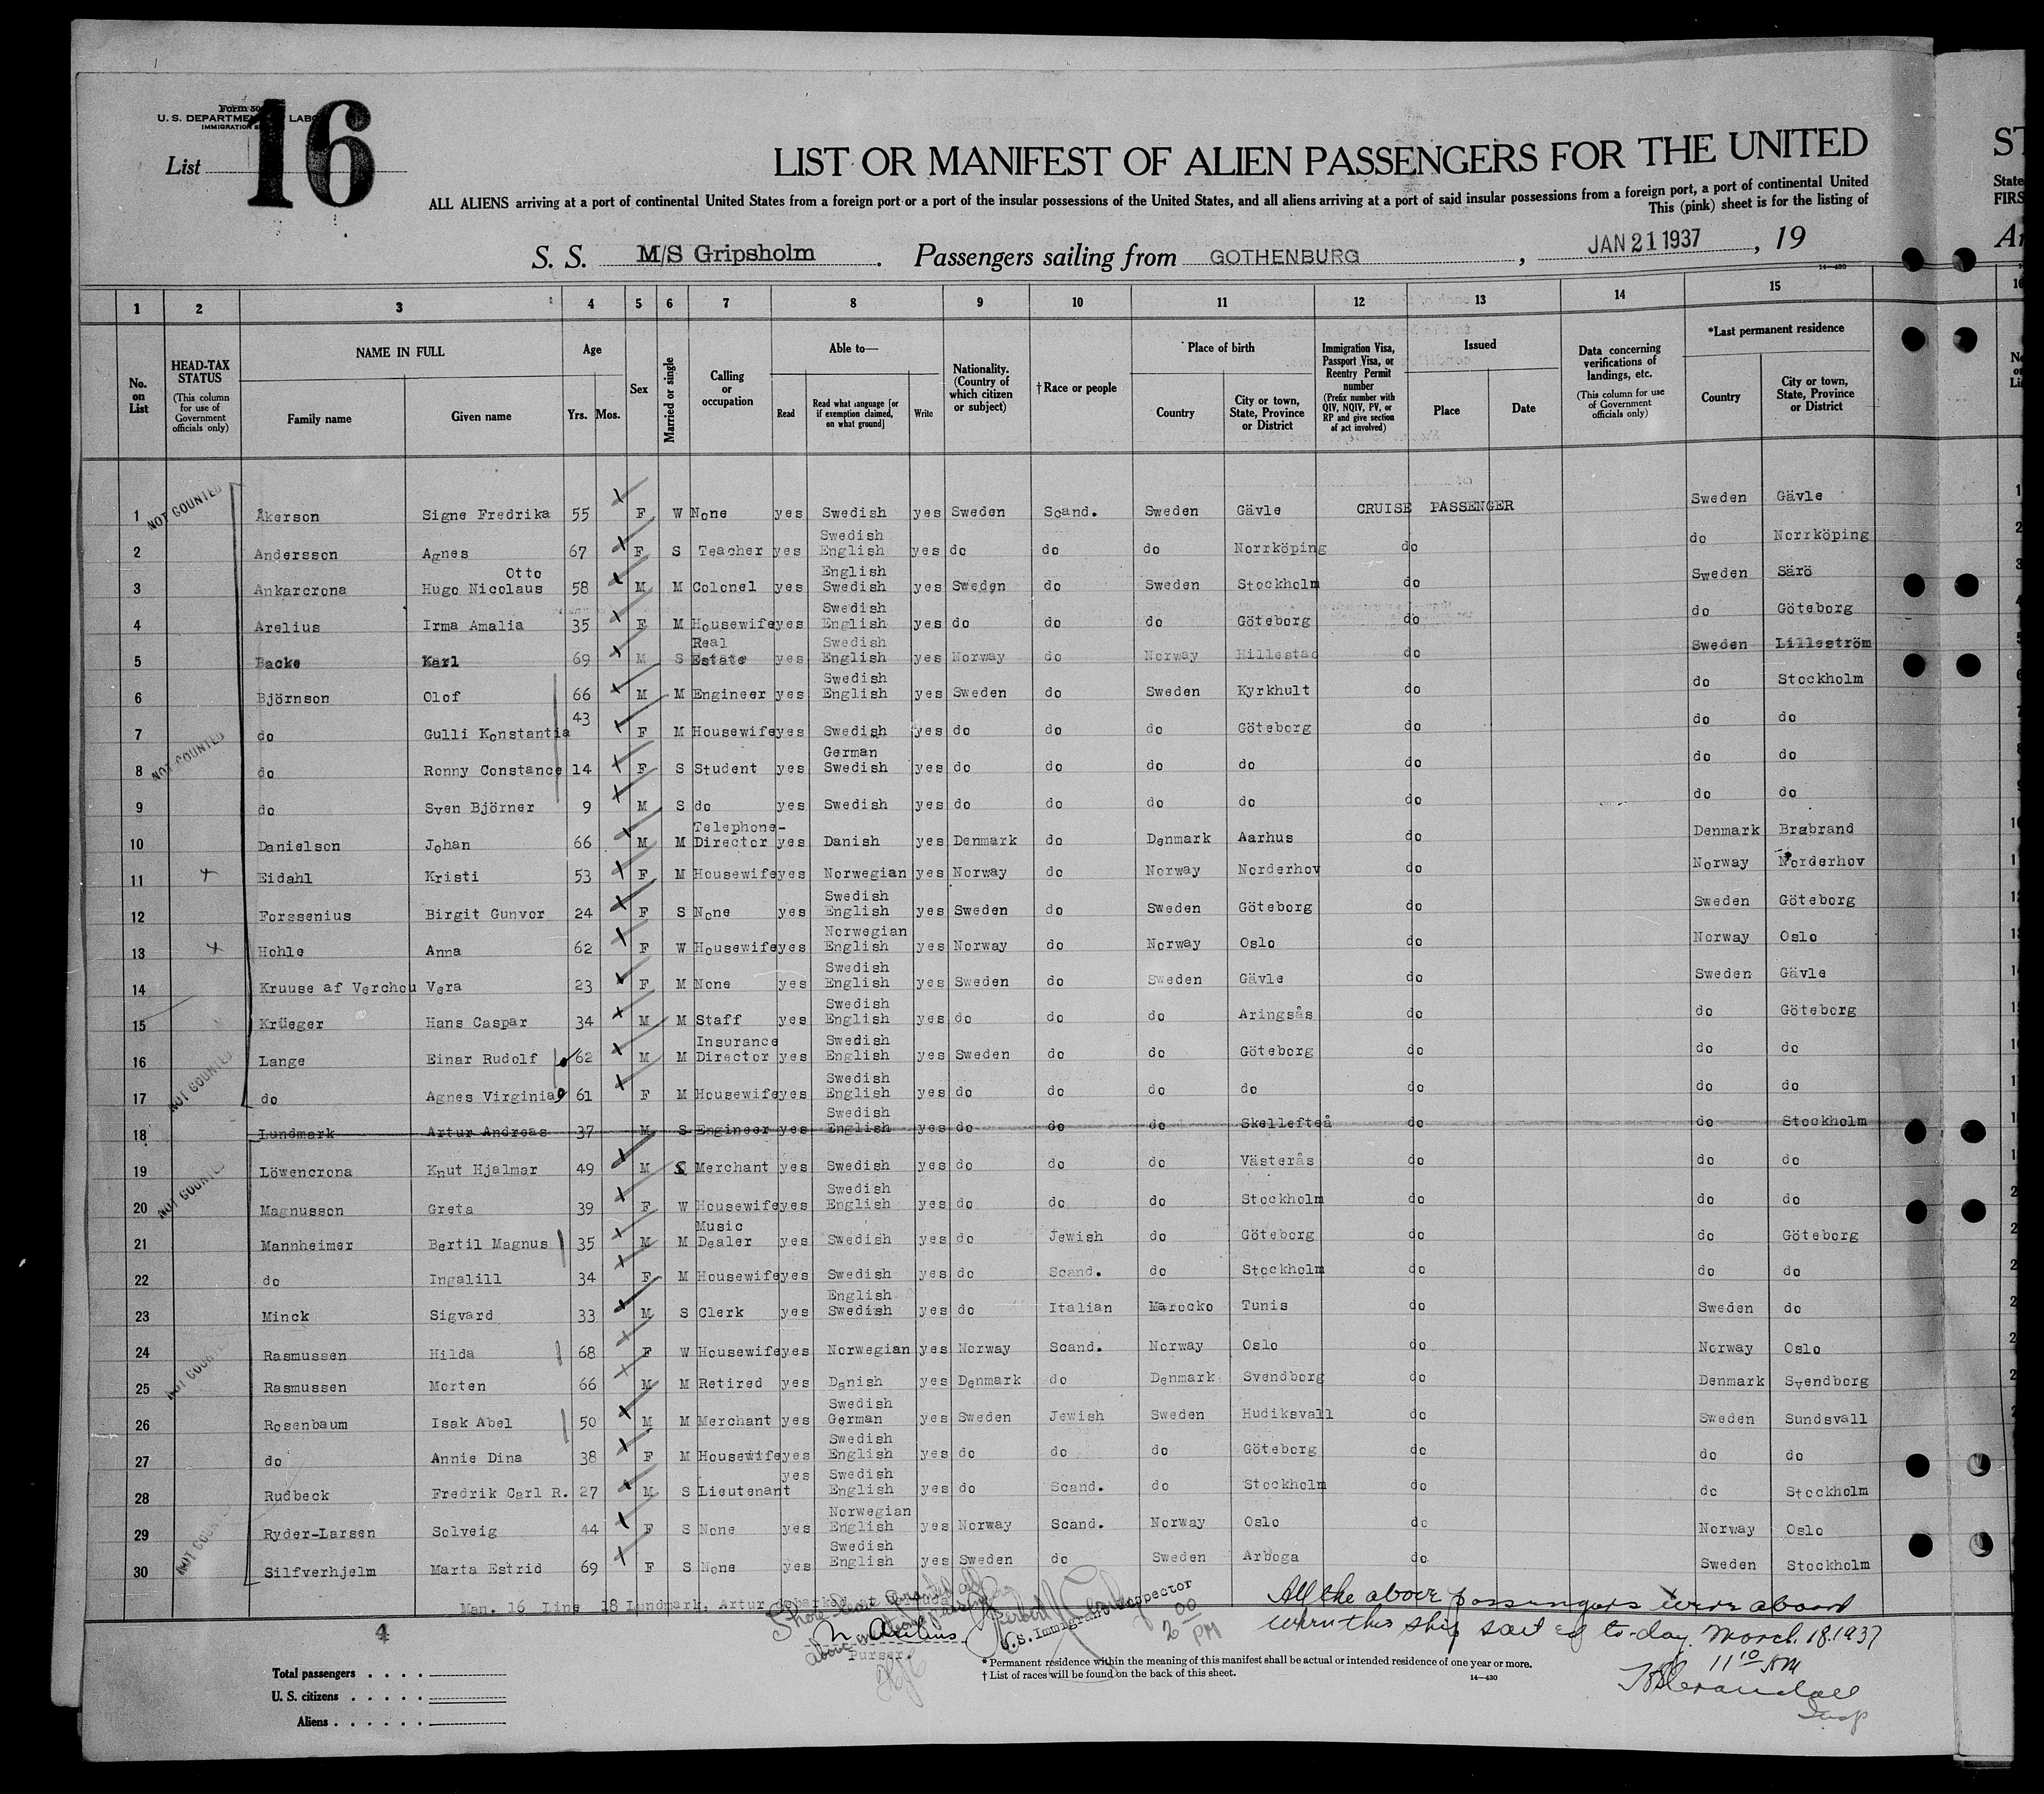 Form 50
U. S. DEPARTMENT LABO
IMMIGRATION S
List
16
LIST OR MANIFEST OF ALIEN PASSENGERS FOR THE UNITED
ALL ALIENS arriving at a port of continental United States from a foreign port or a port of the insular possessions of the United States, and all aliens arriving at a port of said insular possessions from a foreign port, a port of continental United
This (pink) sheet is for the listing of
S. S. M/S Gripsholm. Passengers sailing from GOTHENBURG, JAN 21 1937, 19
14—430
ST
State
FIRS
1 2 3 4 5 6 7 8 9 10 11 12 13 14 15
No. on List
HEAD-TAX STATUS (This column for use of Government officials only)
NAME IN FULL Family name Given name
Age Yrs. Mos.
Sex
Married or single
Calling or occupation
Able to— Read Read what language [or if exemption claimed, on what ground] Write
Nationality. (Country of which citizen or subject)
† Race or people
Place of birth Country City or town, State, Province or District
Immigration Visa, Passport Visa, or Reentry Permit number (Prefix number with QIV, NQIV, PV, or RP and give section of act involved)
Issued Place Date
Data concerning verifications of landings, etc. (This column for use of Government officials only)
*Last permanent residence Country City or town, State, Province or District
NOT COUNTED
1 Åkerson Signe Fredrika 55 F W None yes Swedish yes Sweden Scand. Sweden Gävle CRUISE PASSENGER Sweden Gävle
2 Andersson Agnes 67 F S Teacher yes Swedish English yes do do do Norrköping do do Norrköping
3 Ankarcrona Hugo Nicolaus Otto 58 M M Colonel yes English Swedish yes Sweden do Sweden Stockholm do Sweden Särö
4 Arelius Irma Amalia 35 F M Housewife yes Swedish English yes do do do Göteborg do do Göteborg
5 Backe Karl 69 M S Real Estate yes Swedish English yes Norway do Norway Hillestad do Sweden Lilleström
6 Björnson Olof 66 M M Engineer yes Swedish English yes Sweden do Sweden Kyrkhult do do Stockholm
7 do Gulli Konstantia 43 F M Housewife yes Swedish yes do do do Göteborg do do do
NOT COUNTED
8 do Ronny Constance 14 F S Student yes German Swedish yes do do do do do do do
9 do Sven Björner 9 M S do yes Swedish yes do do do do do do do
10 Danielson Johan 66 M M Telephone-Director yes Danish yes Denmark do Denmark Aarhus do Denmark Brabrand
11 Eidahl Kristi 53 F M Housewife yes Norwegian yes Norway do Norway Norderhov do Norway Norderhov
12 Forssenius Birgit Gunvor 24 F S None yes Swedish English yes Sweden do Sweden Göteborg do Sweden Göteborg
13 Hohle Anna 62 F W Housewife yes Norwegian English yes Norway do Norway Oslo do Norway Oslo
14 Kruuse af Verchou Vera 23 F M None yes Swedish English yes Sweden do Sweden Gävle do Sweden Gävle
15 Krüeger Hans Caspar 34 M M Staff yes Swedish English yes do do do Aringsås do do Göteborg
16 Lange Einar Rudolf 62 M M Insurance Director yes Swedish English yes Sweden do do Göteborg do do do
NOT COUNTED
17 do Agnes Virginia 61 F M Housewife yes Swedish English yes do do do do do do do
18 Lundmark Artur Andreas 37 M S Engineer yes Swedish English yes do do do Skellefteå do do Stockholm
19 Löwencrona Knut Hjalmar 49 M S Merchant yes Swedish yes do do do Västerås do do do
NOT COUNTED
20 Magnusson Greta 39 F W Housewife yes Swedish English yes do do do Stockholm do do do
21 Mannheimer Bertil Magnus 35 M M Music Dealer yes Swedish yes do Jewish do Göteborg do do Göteborg
22 do Ingalill 34 F M Housewife yes Swedish yes do Scand. do Stockholm do do do
23 Minck Sigvard 33 M S Clerk yes English Swedish yes do Italian Marocko Tunis do Sweden do
24 Rasmussen Hilda 68 F W Housewife yes Norwegian yes Norway Scand. Norway Oslo do Norway Oslo
NOT COUNTED
25 Rasmussen Morten 66 M M Retired yes Danish yes Denmark do Denmark Svendborg do Denmark Svendborg
26 Rosenbaum Isak Abel 50 M M Merchant yes Swedish German yes Sweden Jewish Sweden Hudiksvall do Sweden Sundsvall
27 do Annie Dina 38 F M Housewife yes Swedish English yes do do do Göteborg do do do
28 Rudbeck Fredrik Carl R. 27 M S Lieutenant yes Swedish English yes do Scand. do Stockholm do do Stockholm
29 Ryder-Larsen Solveig 44 F S None yes Norwegian English yes Norway Scand. Norway Oslo do Norway Oslo
NOT COUNTED
30 Silfverhjelm Marta Estrid 69 F S None yes Swedish English yes Sweden do Sweden Arboga do Sweden Stockholm
Man. 16 Line 18 Lundmark, Artur
Shore leave granted all
above
U.S. Immigrant Inspector
2 00 PM
Purser.
All the above passengers were aboard
when this ship sailed to-day. March 18. 1937
11 10 AM
Insp
4
Total passengers
U. S. citizens
Aliens
* Permanent residence within the meaning of this manifest shall be actual or intended residence of one year or more.
† List of races will be found on the back of this sheet.
14—430